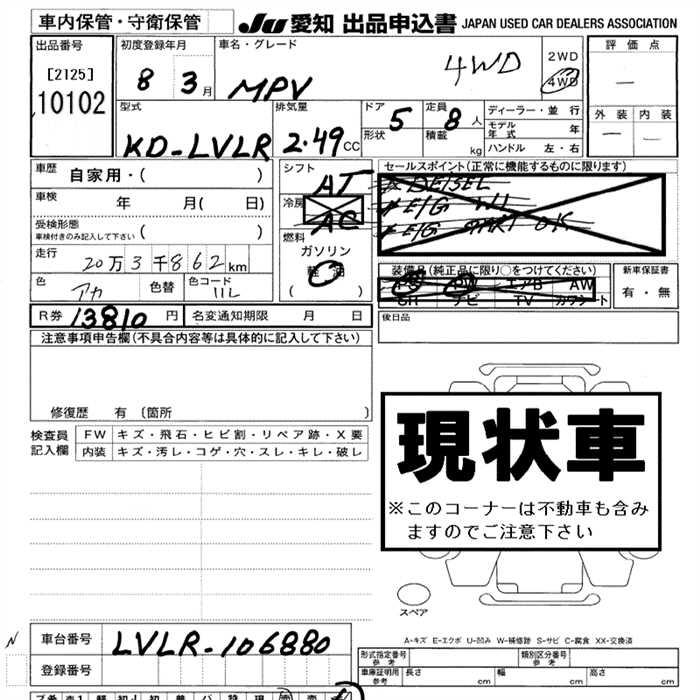 車内保管・守衛保管 JU 愛知 出品申込書 JAPAN USED CAR DEALERS ASSOCIATION
出品番号 初度登録年月 車名・グレード 評価点
[2125] 8 3月 MPV 4WD 2WD 4WD —
10102
型式 排気量 ドア 5 定員 8人 ディーラー・並行 外装 内装
KD-LVLR 2.49CC 形状 積載 kg モデル年式 年 — —
ハンドル 左・右
車歴 自家用・( ) シフト AT セールスポイント(正常に機能するものに限ります)
車検 年 月( 日) 冷房 AC DEISEL
受検形態 ( ) 燃料 # E/G
車検付きのみ記入して下さい ガソリン # E/G OK
走行 20万3千862km 軽油
( )
色 アカ 色替 色コード 11L 装備品(純正品に限り○をつけてください) 新車保証書
PS PW エアB AW 有・無
SH ナビ TV カワシート
R券 13810円 名変通知期限 月 日 後日品
注意事項申告欄(不具合内容等は具体的に記入して下さい)
修復歴 有 〔箇所 〕
検査員記入欄 FW キズ・飛石・ヒビ割・リペア跡・X要
内装 キズ・汚レ・コゲ・穴・スレ・キレ・破レ
現状車
※このコーナーは不動車も含み
ますのでご注意下さい
スペア
A-キズ E-エクボ U-凹み W-補修跡 S-サビ C-腐食 XX-交換済
N 車台番号 LVLR-106880
登録番号
形式指定番号 参考 類別区分番号 参考
車庫証明用 参考 長さ cm 幅 cm 高さ cm